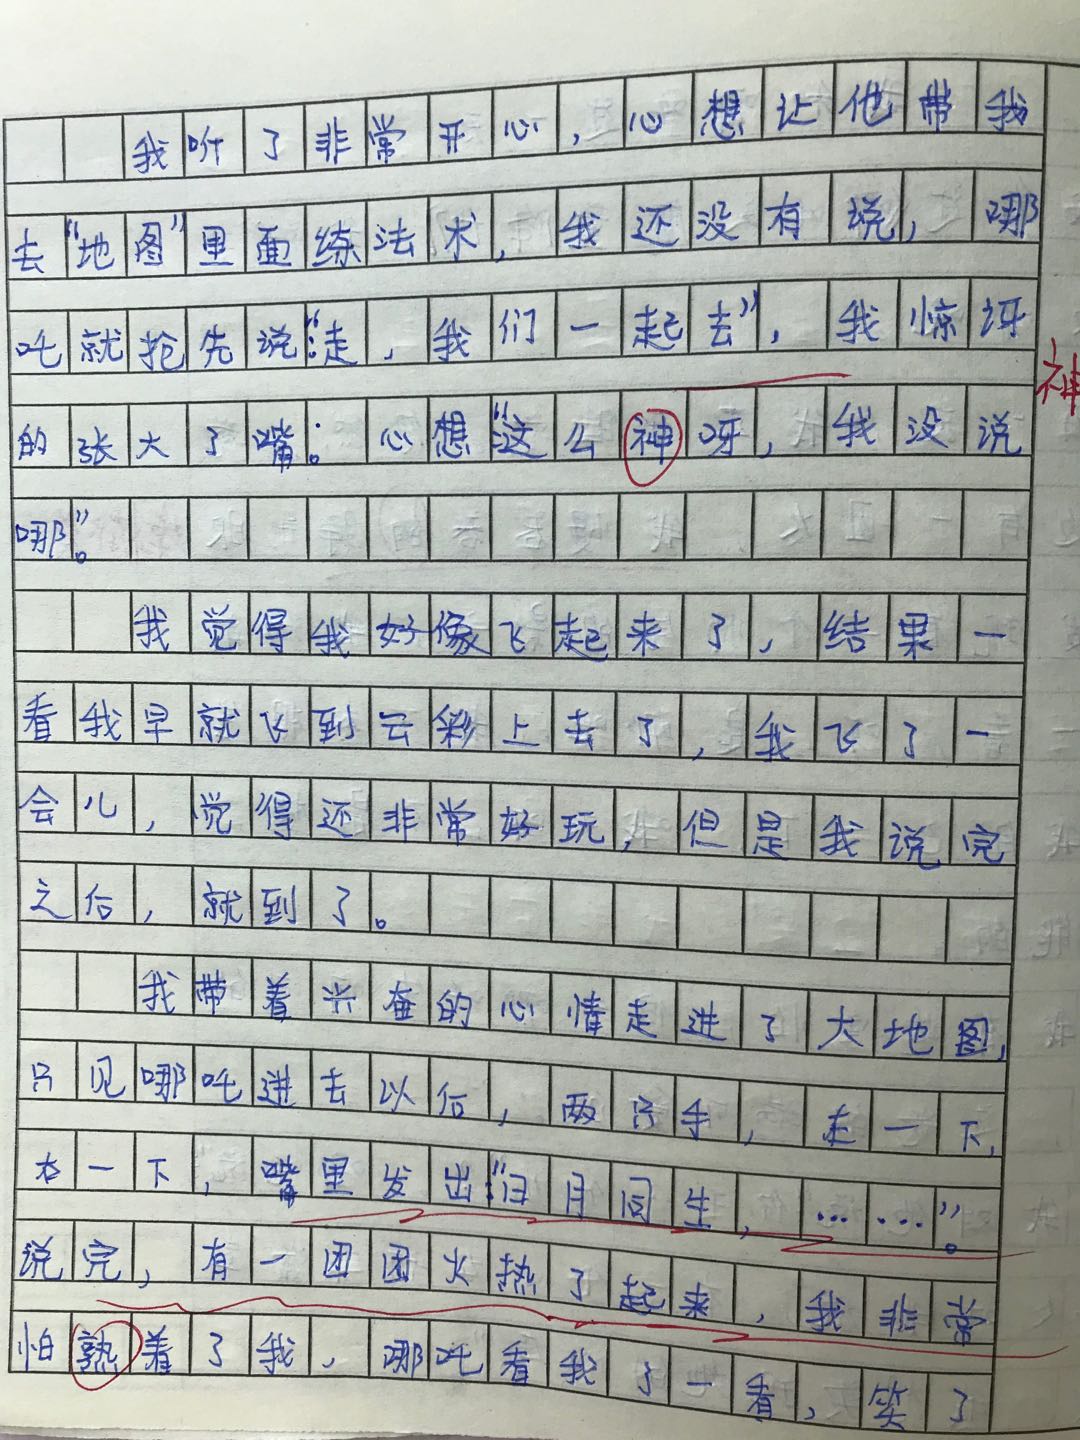 我听了非常开心，心想让他带我
去“地图”里面练法术，我还没有说，哪
吒就抢先说：“走，我们一起去”，我惊讶
的张大了嘴：心想“这么神呀，我没说
哪”。
我觉得我好像飞起来了，结果一
看我早就飞到云彩上去了，我飞了一
会儿，觉得还非常好玩，但是我说完
之后，就到了。
我带着兴奋的心情走进了大地图，
只见哪吒进去以后，两只手，左一下，
右一下，嘴里发出：“日月同生，……”。
说完，有一团团火热了起来，我非常
怕熟着了我，哪吒看我了一看，笑了
神